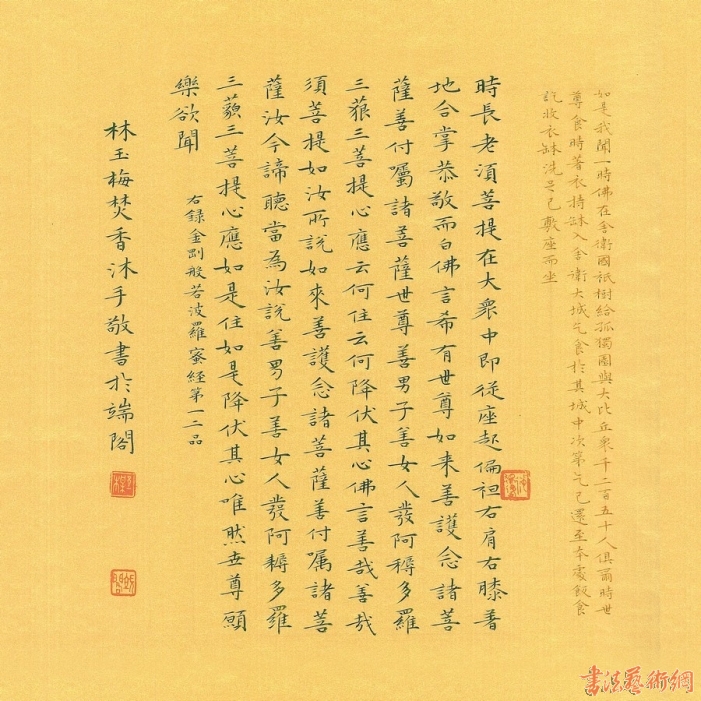 如是我聞一時佛在舍衛國祇樹給孤獨園與大比丘衆千二百五十人俱爾時世
尊食時著衣持缽入舍衛大城乞食於其城中次第乞已還至本處飯食
訖收衣缽洗足已敷座而坐
時長老須菩提在大衆中即從座起偏袒右肩右膝著
地合掌恭敬而白佛言希有世尊如来善護念諸菩
薩善付囑諸菩薩世尊善男子善女人發阿耨多羅
三藐三菩提心應云何住云何降伏其心佛言善哉善哉
須菩提如汝所說如來善護念諸菩薩善付嘱諸菩
薩汝今諦聽當為汝說善男子善女人發阿耨多羅
三藐三菩提心應如是住如是降伏其心唯然世尊願
樂欲聞
右録金剛般若波羅蜜經第一二品
林玉梅焚香沐手敬書於端閣
書法藝術網